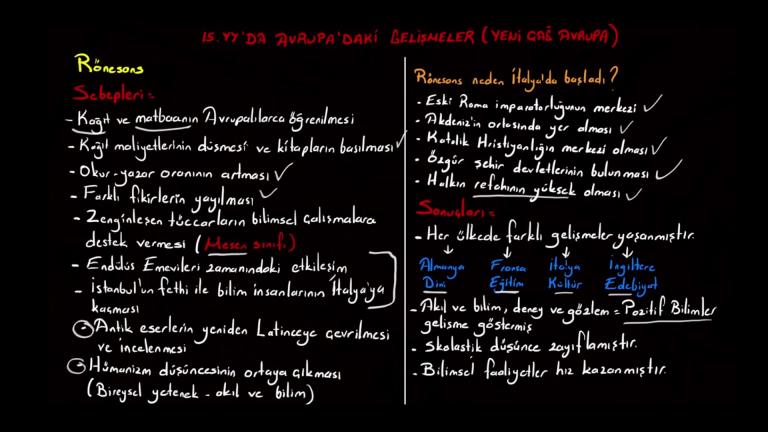 15. YY'DA AVRUPA'DAKİ GELİŞMELER (YENİ ÇAĞ AVRUPA)
Rönesans
Sebepleri =
- Kağıt ve matbaanın Avrupalılarca öğrenilmesi
- Kağıt maliyetlerinin düşmesi ve kitapların basılması
- Okur-yazar oranının artması
- Farklı fikirlerin yayılması
- Zenginleşen tüccarların bilimsel çalışmalara
destek vermesi (Mesen sınıfı)
- Endülüs Emevileri zamanındaki etkileşim
- İstanbul'un fethi ile bilim insanlarının İtalya'ya
kaçması
- Antik eserlerin yeniden Latinceye çevrilmesi
ve incelenmesi
- Hümanizm düşüncesinin ortaya çıkması
(Bireysel yetenek - akıl ve bilim)
Rönesans neden İtalya'da başladı?
- Eski Roma imparatorluğunun merkezi
- Akdeniz'in ortasında yer alması
- Katolik Hristiyanlığın merkezi olması
- Özgür şehir devletlerinin bulunması
- Halkın refahının yüksek olması
Sonuçları =
- Her ülkede farklı gelişmeler yaşanmıştır.
Almanya Fransa İtalya İngiltere
Dini Eğitim Kültür Edebiyat
- Akıl ve bilim, deney ve gözlem = Pozitif Bilimler
gelişme göstermiş
- Skolastik düşünce zayıflamıştır.
- Bilimsel faaliyetler hız kazanmıştır.